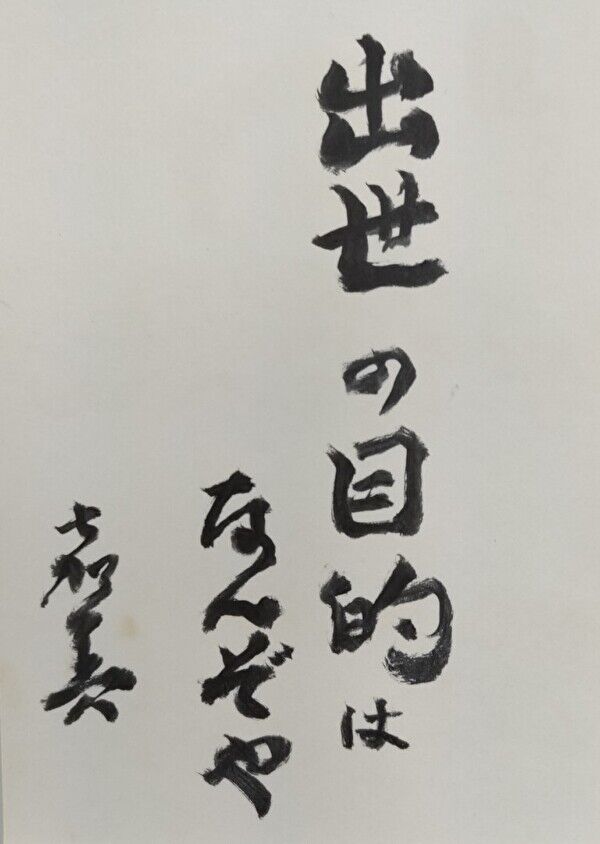 出世の目的は
なんぞや
嘉美